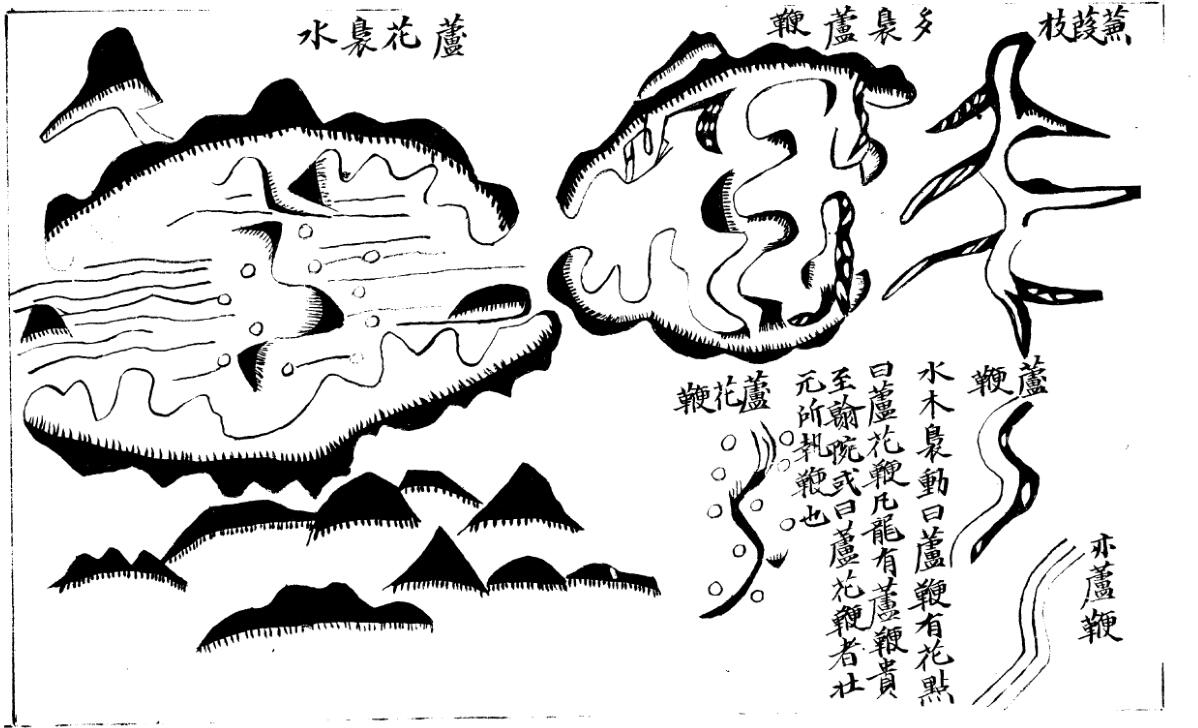 蒹葭枝
多裊蘆鞭
蘆花裊水
蘆鞭
水木裊動曰蘆鞭有花點
曰蘆花鞭凡龍有蘆鞭貴
至翰院或曰蘆花鞭者壯
元所執鞭也
蘆花鞭
亦蘆鞭